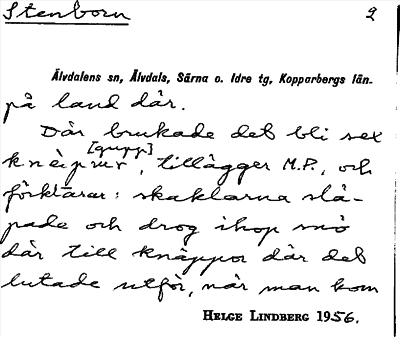 Stenborn 2
Älvdalens sn, Älvdals, Särna o. Idre tg, Kopparbergs län.
på land där.
Där brukade det bli sex
[gupp]
knèppur, tillägger M.P., och
förklarar: skaklarna slä-
pade och drog ihop snö
där till knäppor där det
lutade utför, när man kom
HELGE LINDBERG 1956.